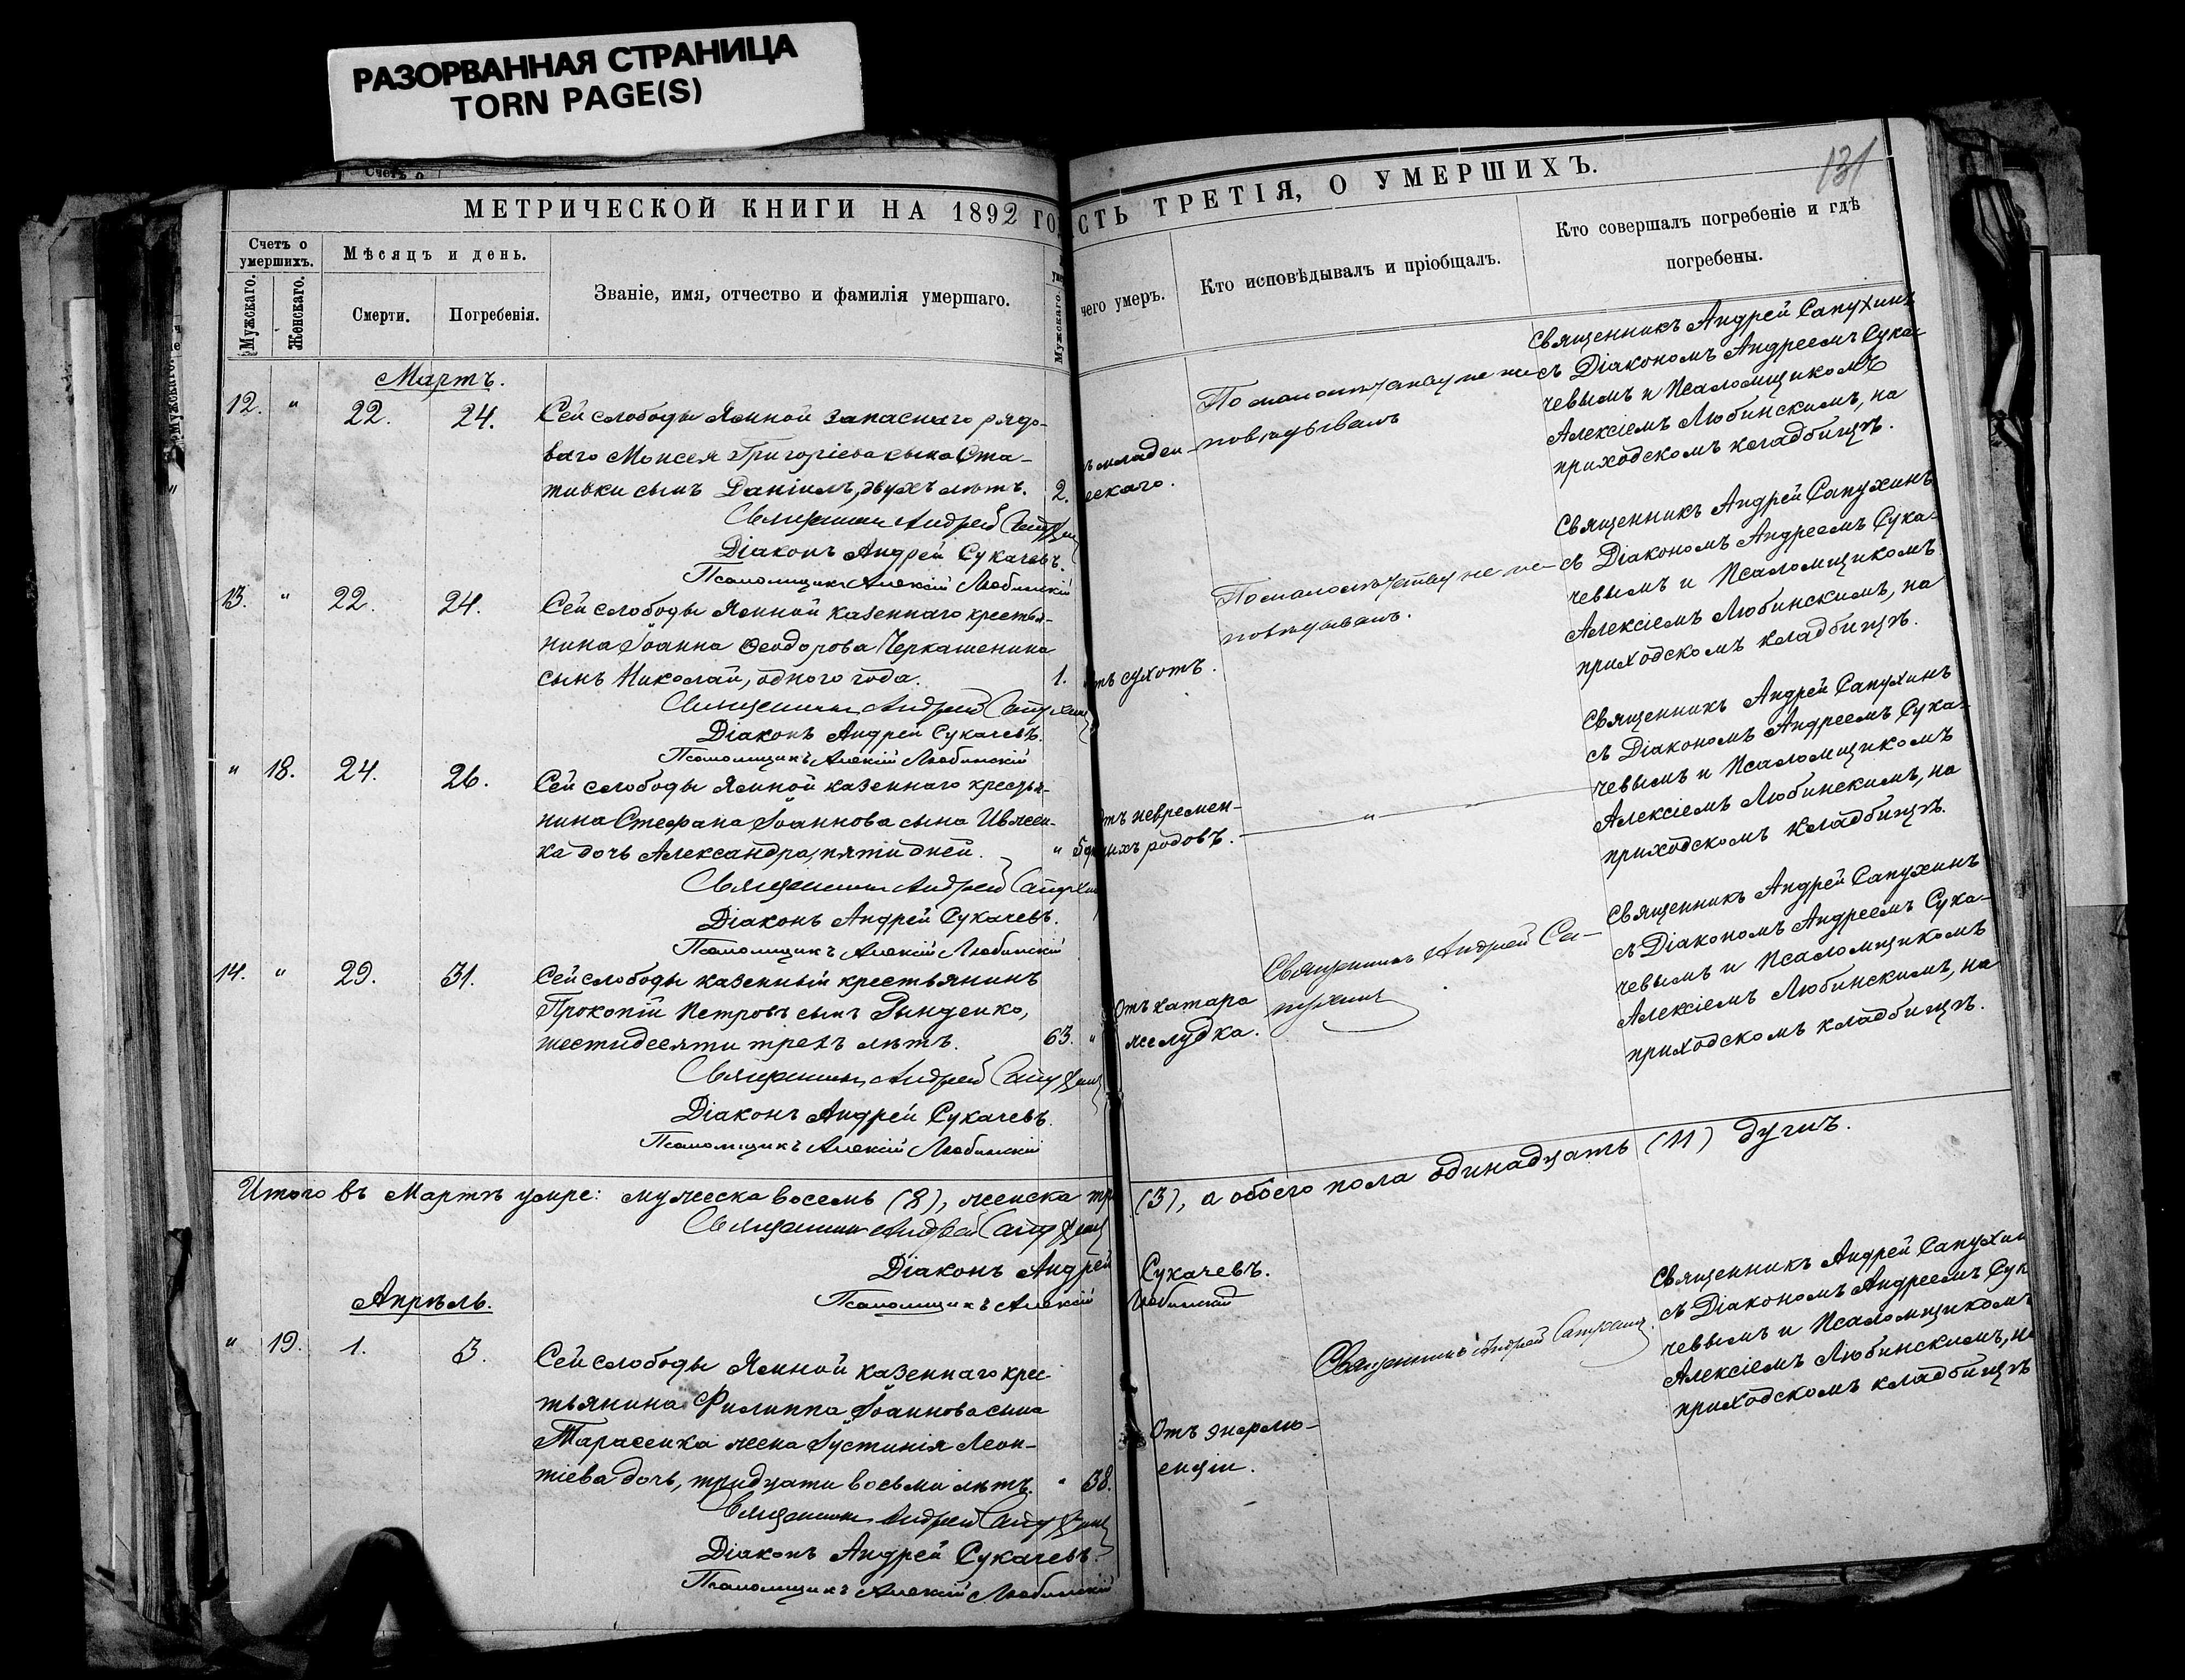 РАЗОРВАННАЯ СТРАНИЦА
TORN PAGE(S)
Счетъ о
МЕТРИЧЕСКОЙ КНИГИ НА 1892 ГО
Счетъ о умершихъ.
Мужскаго.
Женскаго.
Мѣсяцъ и день.
Смерти.
Погребенія.
Званіе, имя, отчество и фамилія умершаго.
Мужскаго.
Мартъ.
12. " 22. 24. Сей слободы Ямной запаснаго рядо-
ваго Моисея Григоріева сына Ста-
тивки сынъ Даніилъ, двухъ лѣтъ. 2.
Священникъ Андрей Сапухинъ
Діаконъ Андрей Сукачевъ.
Псаломщикъ Алексій Любинскій
13. " 22. 24. Сей слободы Ямной казеннаго крестья-
нина Іоанна Ѳеодорова Черкашенина
сынъ Николай, одного года. 1.
Священникъ Андрей Сапухинъ
Діаконъ Андрей Сукачевъ.
Псаломщикъ Алексій Любинскій
" 18. 24. 26. Сей слободы Ямной казеннаго крестья-
нина Стефана Іоаннова сына
ка дочь Александра, пяти дней. " 5
Священникъ Андрей Сапухинъ
Діаконъ Андрей Сукачевъ.
Псаломщикъ Алексій Любинскій
14. " 29. 31. Сей слободы казенный крестьянинъ
Прокопій Петровъ сынъ Рынденко,
шестидесяти трехъ лѣтъ. 63. "
Священникъ Андрей Сапухинъ
Діаконъ Андрей Сукачевъ.
Псаломщикъ Алексій Любинскій
Итого въ Мартѣ умре: мужеска восемь (8), женска
Священникъ Андрей Сапухинъ
Діаконъ Андрей
Псаломщикъ Алексій
Апрѣль.
" 19. 1. 3. Сей слободы Ямной казеннаго крес-
тьянина Филиппа Іоаннова сына
Тарасенка жена Іустинія Леон-
тіева дочь, тридцати восьми лѣтъ. " 38.
Священникъ Андрей Сапухинъ
Діаконъ Андрей Сукачевъ.
Псаломщикъ Алексій Любинскій
131
СТЬ ТРЕТІЯ, О УМЕРШИХЪ.
чего умеръ.
Кто исповѣдывалъ и пріобщалъ.
Кто совершалъ погребеніе и гдѣ
погребены.
младен-
ческаго.
По малолѣтству не ис-
повѣдыванъ
Священникъ Андрей Сапухинъ
съ Діакономъ Андреемъ Сука-
чевымъ и Псаломщикомъ
Алексіемъ Любинскимъ, на
приходскомъ кладбищѣ.
отъ сухотъ.
По малолѣтству не ис-
повѣдыванъ.
Священникъ Андрей Сапухинъ
съ Діакономъ Андреемъ Сука-
чевымъ и Псаломщикомъ
Алексіемъ Любинскимъ, на
приходскомъ кладбищѣ.
отъ невремен-
ныхъ родовъ.
"
Священникъ Андрей Сапухинъ
съ Діакономъ Андреемъ Сука-
чевымъ и Псаломщикомъ
Алексіемъ Любинскимъ, на
приходскомъ кладбищѣ.
Отъ катара
желудка.
Священникъ Андрей Са-
пухинъ
Священникъ Андрей Сапухинъ
съ Діакономъ Андреемъ Сука-
чевымъ и Псаломщикомъ
Алексіемъ Любинскимъ, на
приходскомъ кладбищѣ.
(3), а обоего пола одинадцать (11) душъ.
Сукачевъ.
Любинскій
Отъ энфлю-
енціи.
Священникъ Андрей Сапухинъ.
Священникъ Андрей Сапухин
съ Діакономъ Андреемъ Сук
чевымъ и Псаломщикомъ
Алексіемъ Любинскимъ, на
приходскомъ кладбищѣ